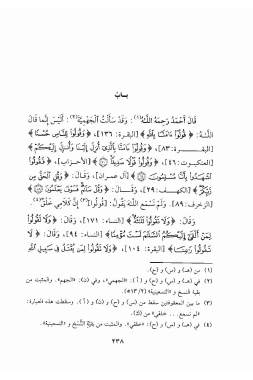 باب
قال أحمد رحمه الله(١): وقد سألت الجهمية(٢): أليس إنما قال
الله: ﴿قُولُوا آمَنَّا بِاللَّهِ﴾ [البقرة: ١٣٦]، ﴿وَقُولُوا لِلنَّاسِ حُسْنًا﴾
[البقرة: ٨٣]، ﴿وَقُولُوا آمَنَّا بِالَّذِي أُنْزِلَ إِلَيْنَا وَأُنْزِلَ إِلَيْكُمْ﴾
[العنكبوت: ٤٦]، ﴿وَقُولُوا قَوْلًا سَدِيدًا﴾ [الأحزاب]، ﴿فَقُولُوا
اشْهَدُوا بِأَنَّا مُسْلِمُونَ﴾ [آل عمران]، وقال: ﴿وَقُلِ الْحَقُّ مِنْ
رَبِّكُمْ﴾ [الكهف: ٢٩]، وقال: ﴿وَقُلْ سَلَامٌ فَسَوْفَ يَعْلَمُونَ﴾
[الزخرف: ٨٩]. ولم نسمع الله يقول: [قولوا](٣) إن كلامي خلقي(٤).
وقال: ﴿وَلَا تَقُولُوا ثَلَاثَةٌ﴾ [النساء: ١٧١]، وقال: ﴿وَلَا تَقُولُوا
لِمَنْ أَلْقَى إِلَيْكُمُ السَّلَامَ لَسْتَ مُؤْمِنًا﴾ [النساء: ٩٤]، وقال: ﴿لَا
تَقُولُوا رَاعِنَا﴾ [البقرة: ١٠٤]، ﴿وَلَا تَقُولُوا لِمَنْ يُقْتَلُ فِي سَبِيلِ اللَّهِ
(١) من (هـ) و (س) و (ح).
(٢) في (هـ) و (س) و (ح) و (أ): «الجهمي»، وفي (ن): «الجهم». والمثبت من
بقية النسخ و «التسعينية» (٥١٣/٢)
(٣) ما بين المعقوفتين سقط من (س) و (ح) و (ن) و (أ). وسقطت هذه العبارة:
«لم نسمع... خلقي» من (ك).
(٤) في (هـ) و (س) و (ح): «خلقي». والمثبت من بقية النسخ و «التسعينية».
٢٣٨